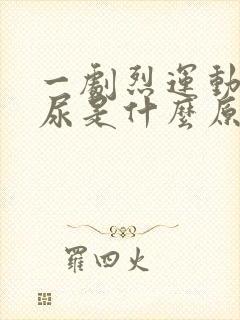 一劇烈運動
尿是什麼原
羅四火